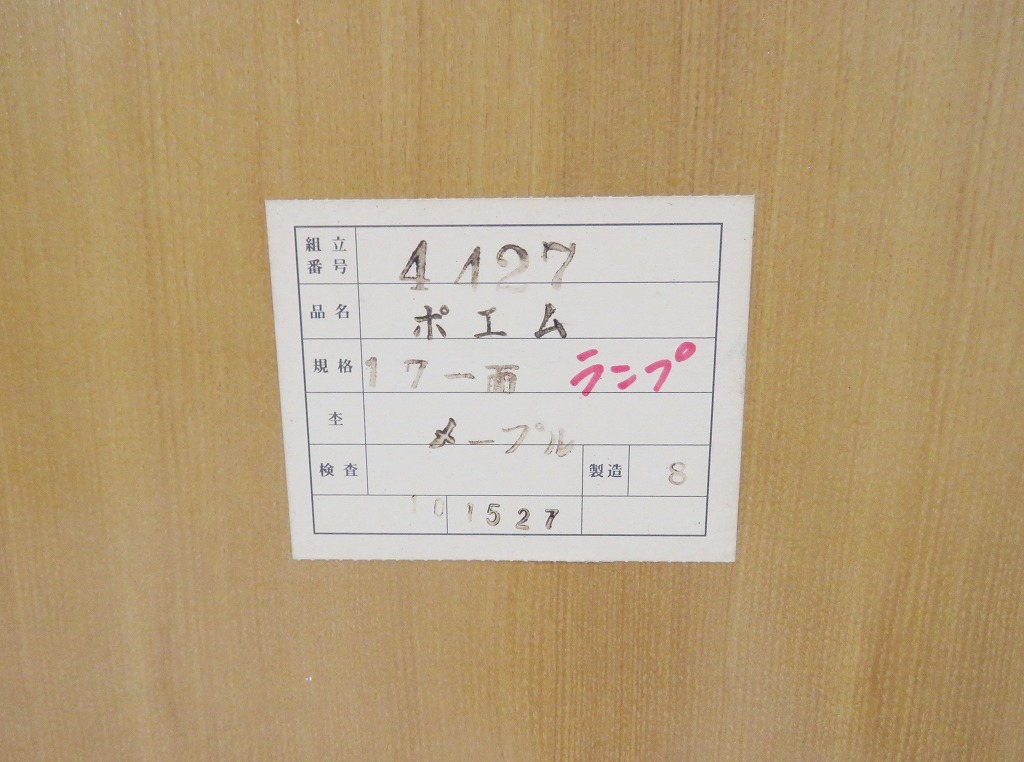 組立番号 4127
品名 ポエム
規格 17一面 ランプ
杢 メープル
検査 製造 8
10 1527